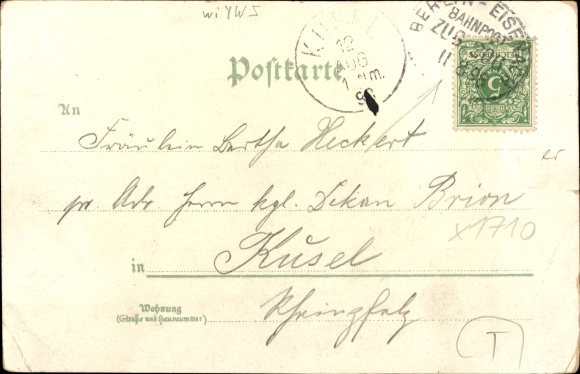 wiYWS
BERLIN - EISE
BAHNPOST
ZUG
11 8 98
KUSEL
12
AUG
1 Nm.
98
REICHSPOST
5
Postkarte
An
Fräulein Bertha Heckert
pr Adr. Herrn kgl. Dekan Brion
x1710
in Kusel
Wohnung
(Straße und Hausnummer)
Rheinpfalz
T